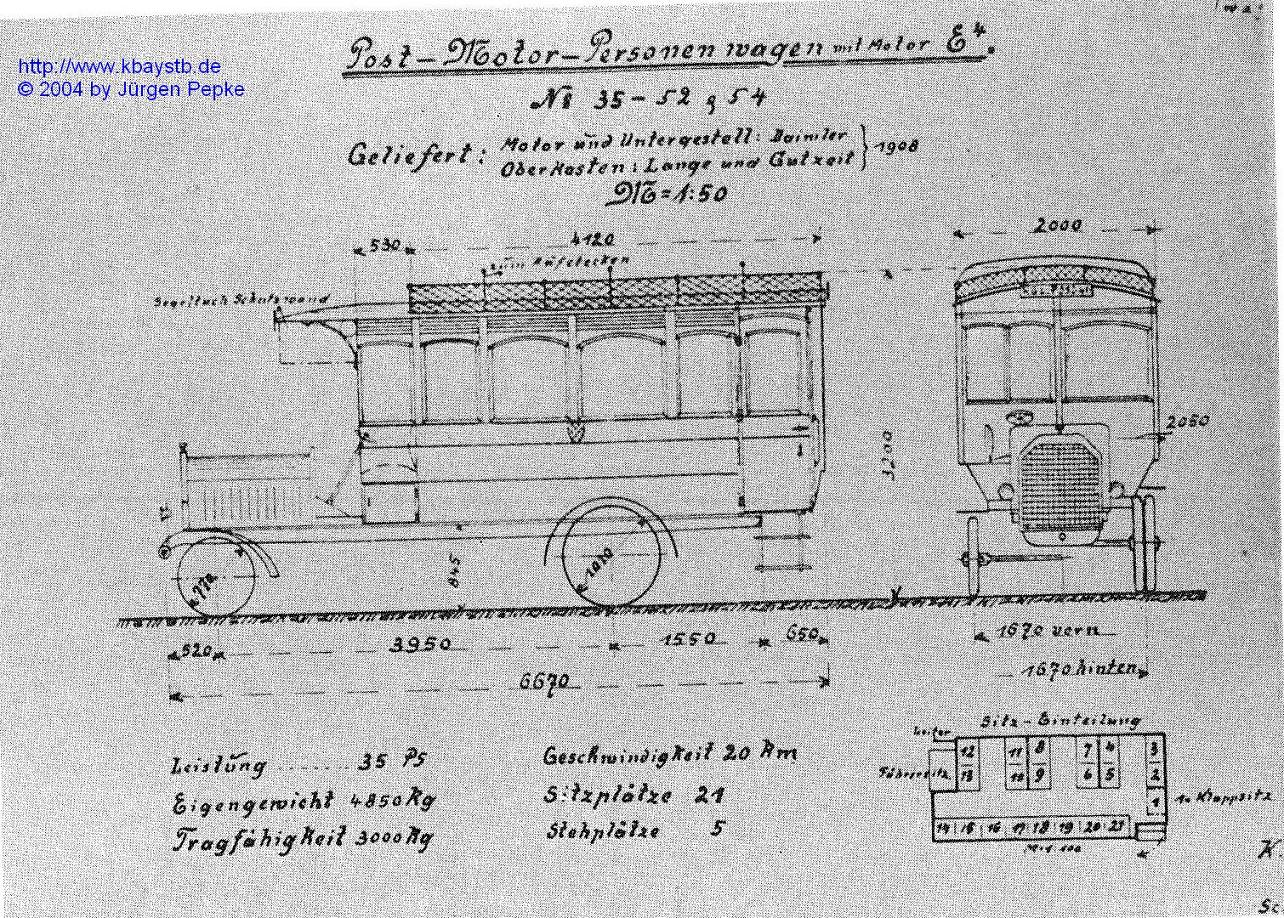 http://www.kbaystb.de
© 2004 by Jürgen Pepke
Post-Motor-Personenwagen mit Motor E⁴.
35-52 & 54
Geliefert: Motor und Untergestell: Daimler } 1908
Oberkasten: Lange und Gutzeit
M=1:50
530
4120
2000
zum Aufstecken
Segeltuch Schutzwand
2050
3200
845
770
1010
520
3950
1550
650
6670
1670 vorn
1670 hinten
Leistung ...... 35 PS
Eigengewicht 4850 kg
Tragfähigkeit 3000 kg
Geschwindigkeit 20 km
Sitzplätze 21
Stehplätze 5
Sitz-Einteilung
Leiter
Führersitz
12 11 8 7 4 3
13 10 9 6 5 2
1
1 = Klappsitz
14 15 16 17 18 19 20 21
M=1:100
K.